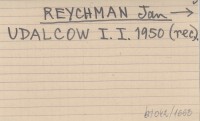 REYCHMAN Jan →
UDALCOW I. I. 1950 (rec.)